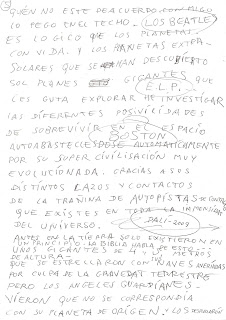 QUIÉN NO ESTE DE ACUERDO CONMIGO
LO PEGO EN EL TECHO. LOS BEATLES
ES LOGICO QUE LOS PLANETAS
CON VIDA. Y LOS PLANETAS EXTRA
SOLARES QUE SE HAN DESCUBIERTO
SOL PLANES GIGANTES QUE
LES GUSTA EXPLORAR E INVESTIGAR E.L.P.
LAS DIFERENTES POSIVILIDADES
DE SOBREVIVIR EN EL ESPACIO
AUTOABASTECIENDOSE AUTOMATICAMENTE BOSTON
POR SU SUPER CIVILISACIÓN MUY
EVOLUCIONADA. GRACIAS A SUS
DISTINTOS LAZOS Y CONTACTOS
DE LA TRAÑINA DE AUTOPISTAS DE CONTROL
QUE EXISTES EN TODA LA INMENSIDAD
DEL UNIVERSO. DALI-2009
ANTES EN LA TIERRA SOLO EXISTIERON EN
UN PRINCIPIO LA BIBLIA HABLA DE ESTO
UNOS GIGANTES DE 4 Y METROS
DE ALTURA
QUE SE ESTRELLARON CON NAVES AVERIADAS
POR CULPA DE LA GRAVEDAT TERRESTRE
PERO LOS ANGELES GUARDIANES
VIERON QUE NO SE CORRESPONDIA
CON SU PLANETA DE ORIGEN Y LOS